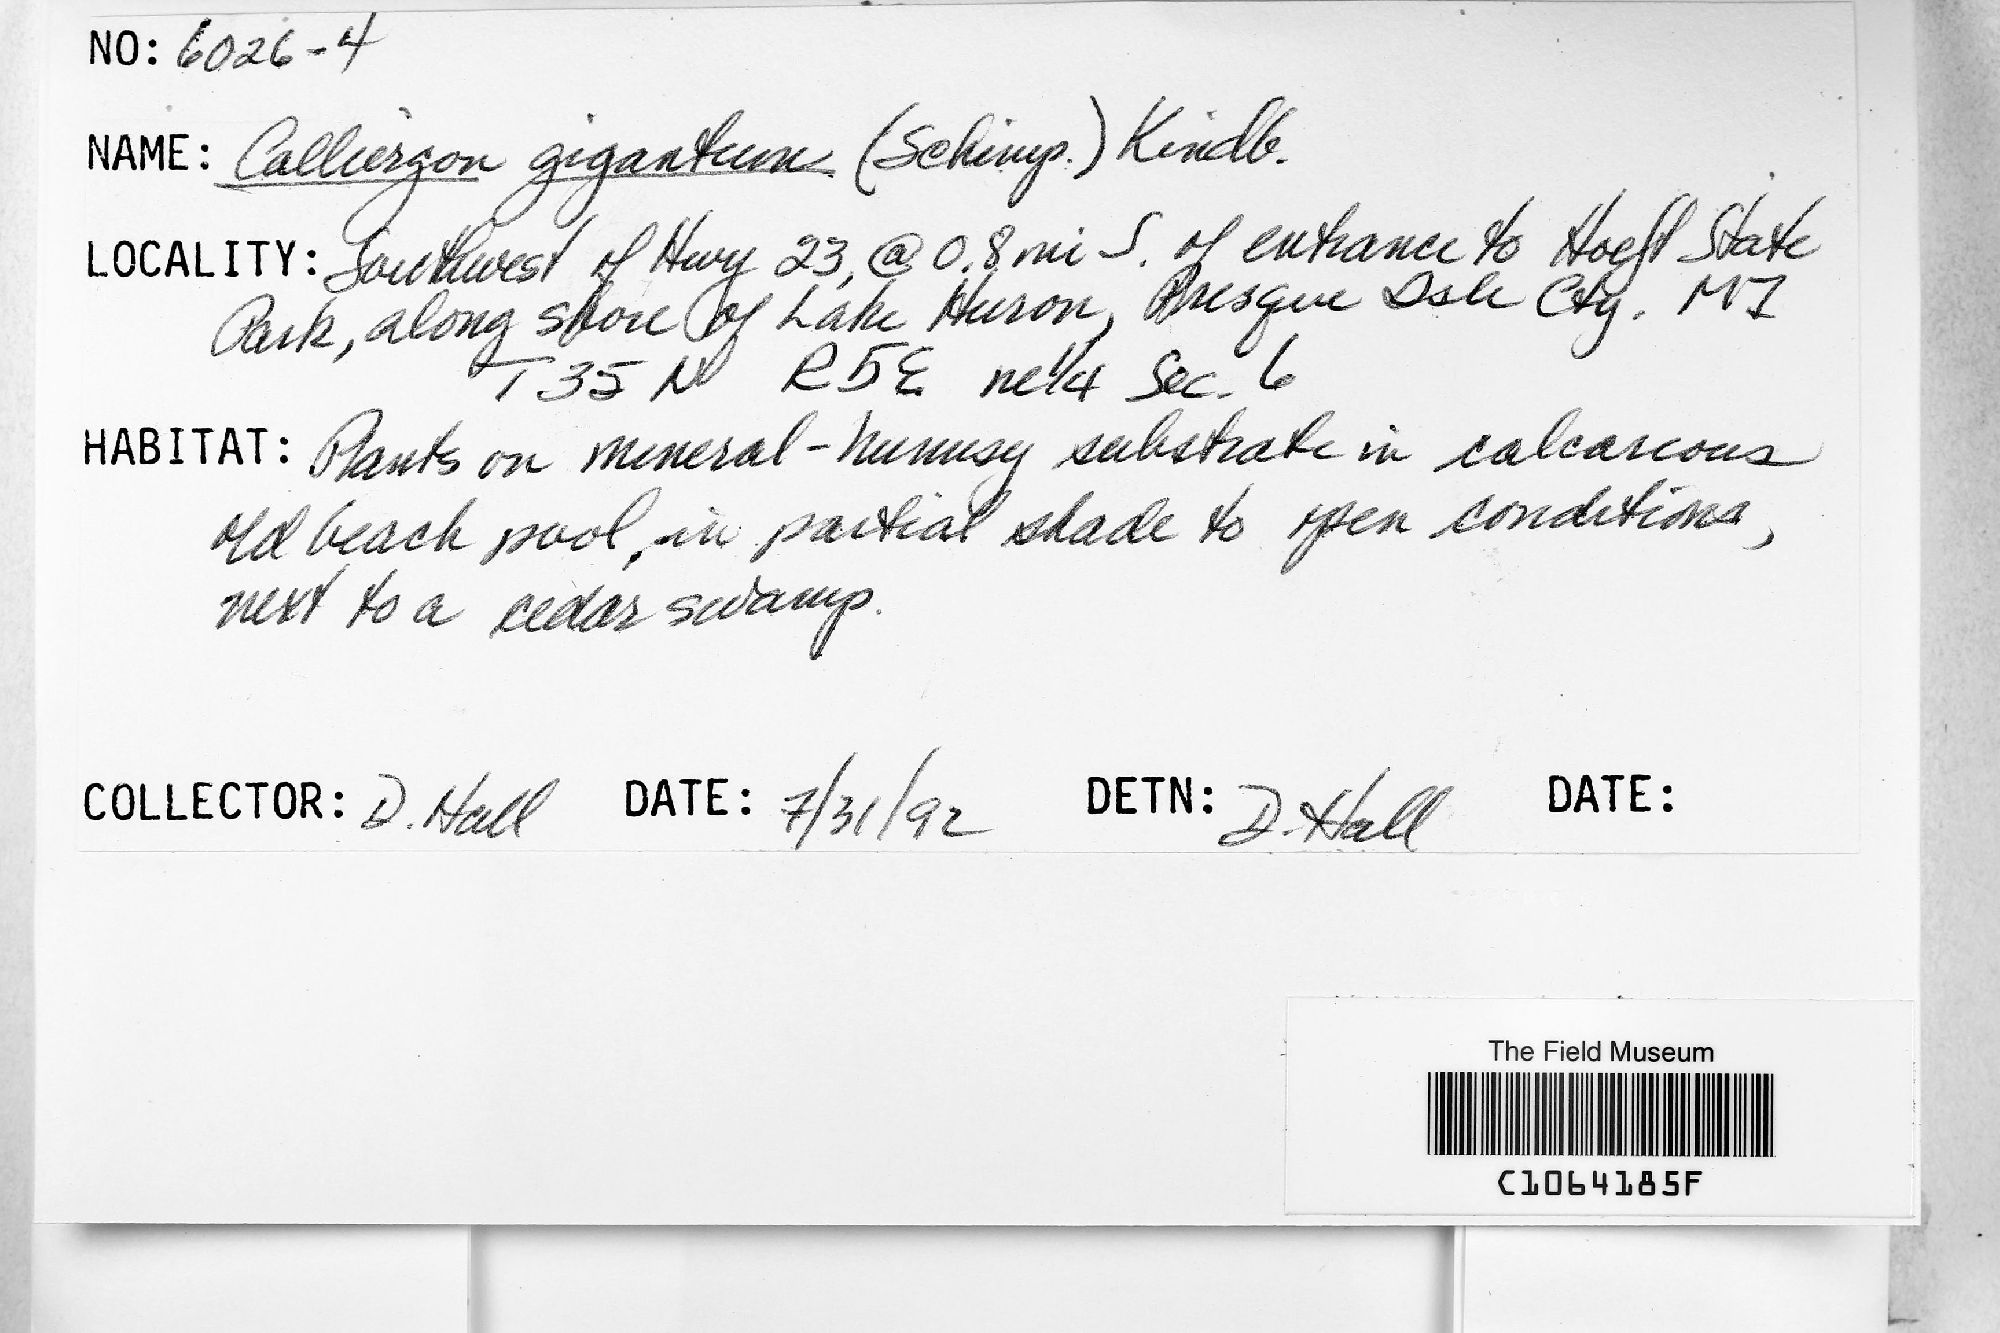 NO: 6026-4
NAME: Calliergon giganteum (Schimp.) Kindb.
LOCALITY: Southwest of Hwy 23, @ 0.8 mi S. of entrance to Hoeft State
Park, along shore of Lake Huron, Presque Isle Cty. MI
T35N R5E ne1/4 Sec. 6
HABITAT: Plants on mineral-humusy substrate in calcareous
old beach pool, in partial shade to open conditions,
next to a cedar swamp.
COLLECTOR: D. Hall DATE: 7/31/92 DETN: D. Hall DATE:
The Field Museum
C1064185F